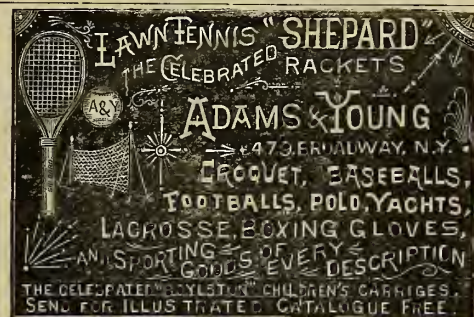 LAWN TENNIS "SHEPARD"
THE CELEBRATED RACKETS
A&Y
ADAMS & YOUNG
473, BROADWAY, N.Y.
CROQUET, BASEBALLS,
FOOTBALLS, POLO, YACHTS,
LACROSSE, BOXING GLOVES,
AND SPORTING GOODS OF EVERY DESCRIPTION
THE CELEBRATED "BOYLSTON" CHILDREN'S CARRIGES.
SEND FOR ILLUSTRATED CATALOGUE FREE.